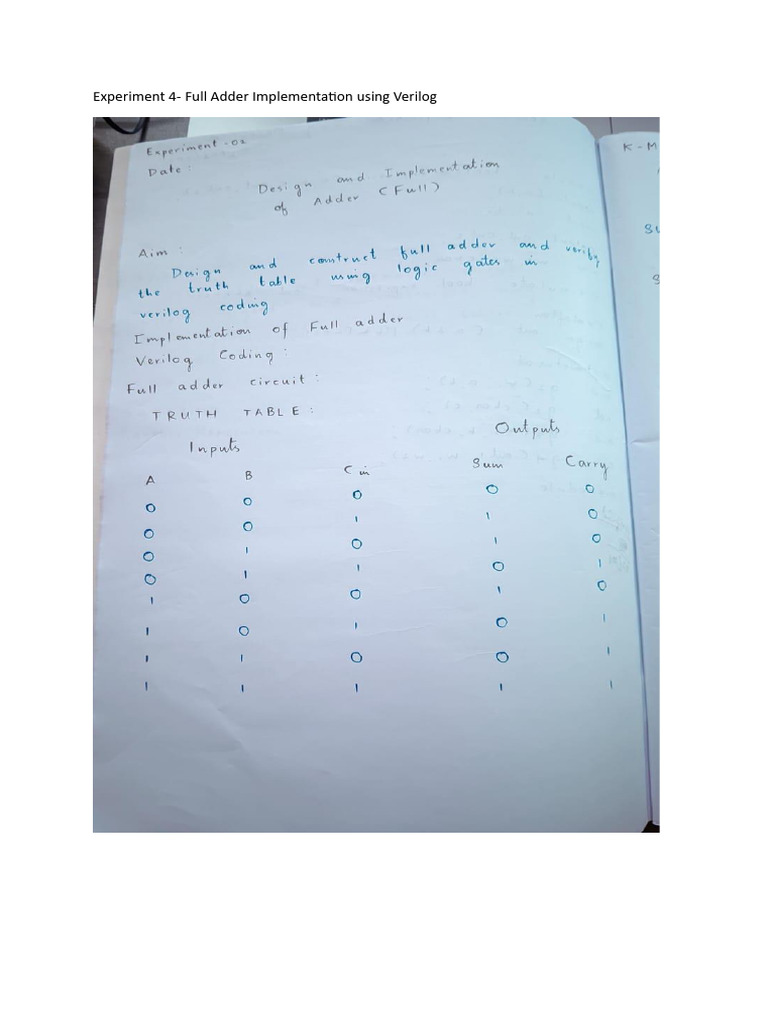 Experiment 4- Full Adder Implementation using Verilog
Experiment - 02
Date :
Design and Implementation
of Adder (Full)
Aim :
Design and construct full adder and verify
the truth table using logic gates in
verilog coding
Implementation of Full adder
Verilog Coding :
Full adder circuit :
TRUTH TABLE :
Inputs Outputs
A B C in Sum Carry
0 0 0 0 0
0 0 1 1 0
0 1 0 1 0
0 1 1 0 1
1 0 0 1 0
1 0 1 0 1
1 1 0 0 1
1 1 1 1 1
K - M